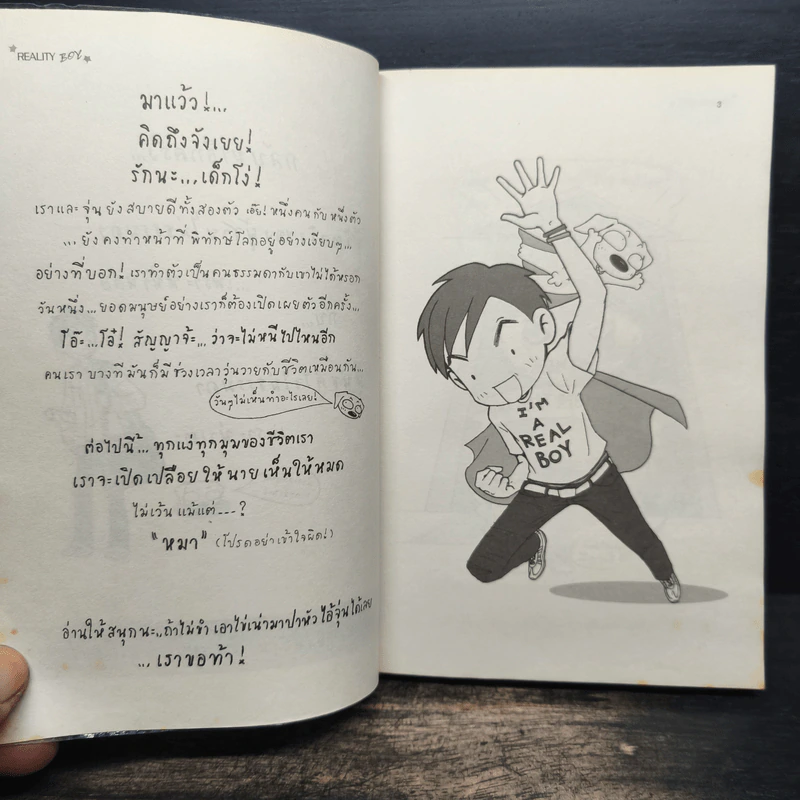 REALITY BOY
มาแว้ว!...
คิดถึงจังเยย!
รักนะ...เด็กโง่!
เราและ จุ่น ยังสบายดีทั้งสองตัว เอ๊ย! หนึ่งคนกับหนึ่งตัว
...ยังคงทำหน้าที่ พิทักษ์โลกอยู่อย่างเงียบๆ...
อย่างที่บอก! เราทำตัวเป็นคนธรรมดากับเขาไม่ได้หรอก
วันหนึ่ง...ยอดมนุษย์อย่างเราก็ต้องเปิดเผยตัวอีกครั้ง...
โอ๊ะ...โอ๋! สัญญาจ้ะ... ว่าจะไม่หนีไปไหนอีก
คนเรา บางทีมันก็มีช่วงเวลาวุ่นวายกับชีวิตเหมือนกัน...
วันๆไม่เห็นทำอะไรเลย!
ต่อไปนี้... ทุกแง่ทุกมุมของชีวิตเรา
เราจะเปิดเปลือย ให้นายเห็นให้หมด
ไม่เว้นแม้แต่---?
"หมา" (โปรดอย่าเข้าใจผิด!)
อ่านให้สนุกนะ..ถ้าไม่ขำ เอาไข่เน่ามาปาหัว ไอ้จุ่นได้เลย
... เราขอท้า!
I'M
A
REAL
BOY